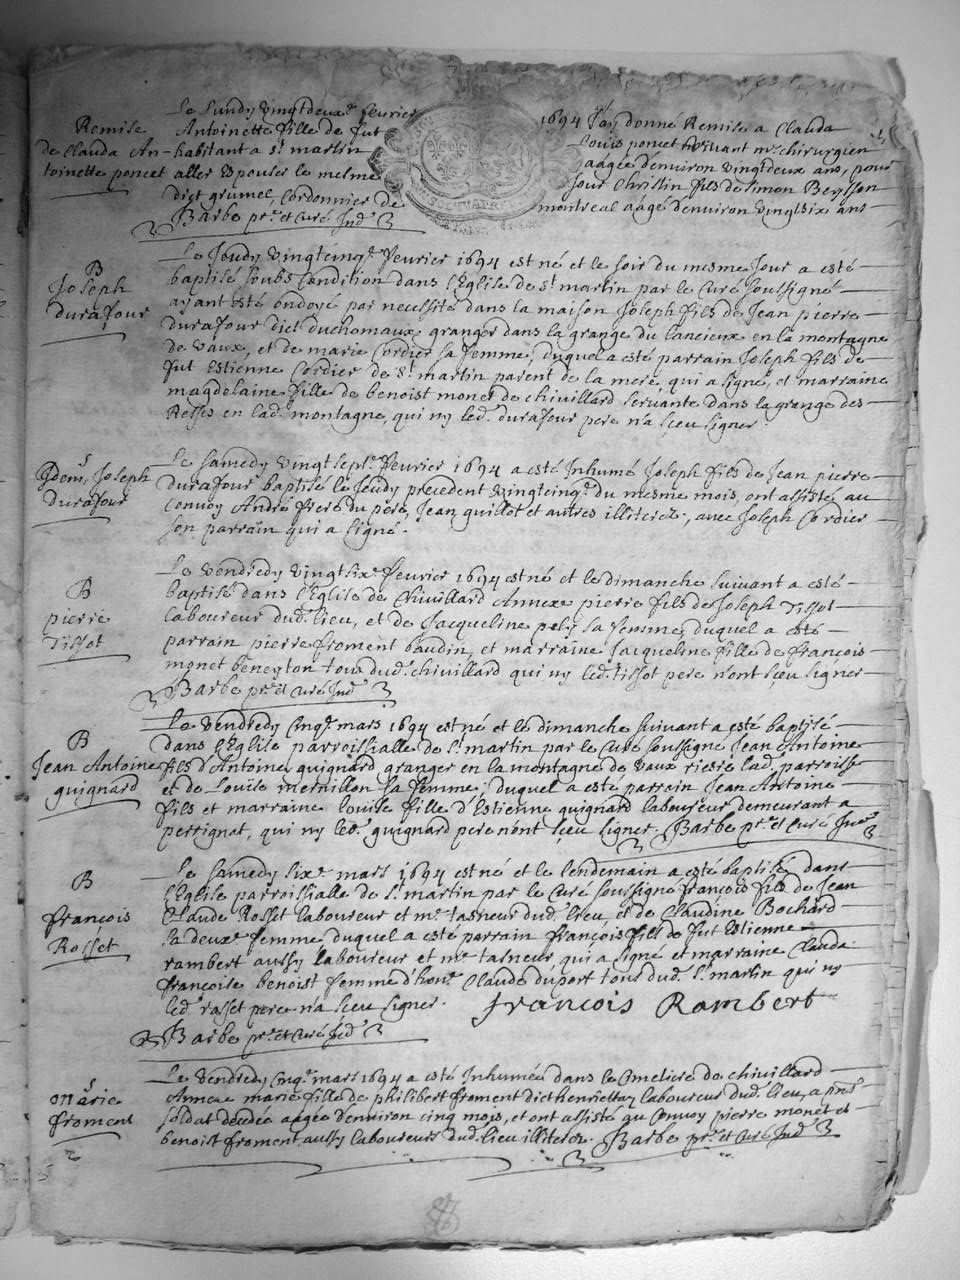 Remise
de Clauda An-
toinette poncet
Le lundy vingtdeux.e fevrier 1694 J'ay donné Remise a Clauda
Antoinette fille de fut Louis poncet vivant m.e chirurgien
habitant a S.t martin aagée d'environ vingtdeux ans, pour
aller espouser le mesme Jour Christin fils de Simon Beysson
dict grumel, Cordonnier de montreal aagé d'environ vingtsix ans
Barbe p.re et Curé Ind.e
B
Joseph
durafour
Le Jeudy vingtcinq.e fevrier 1694 est né et le soir du mesme Jour a esté
baptisé soubs Condition dans l'Eglise de S.t martin par le Curé soussigné
ayant esté ondoyé par necessité dans la maison Joseph fils de Jean pierre
durafour dict duchomaux granger dans la grange du Lancieux en la montagne
de vaux, et de marie Cordier sa femme, duquel a esté parrain Joseph fils de
fut Estienne Cordier de S.t martin parent de la mere, qui a signé, et marraine
magdelaine fille de benoist monet de chivillard servante dans la grange des
Resses en lad. montagne, qui ny led. durafour pere n'a sçeu signer.
S
Idem, Joseph
durafour
Le samedy vingtsept.e fevrier 1694 a esté Inhumé Joseph fils de Jean pierre
durafour baptisé le Jeudy precedent vingtcinq.e du mesme mois, ont assisté au
Convoy André frere du pere, Jean guillot et autres illiterez, avec Joseph Cordier
son parrain qui a signé.
B
pierre
Tissot
Le vendredy vingtsix.e fevrier 1694 est né et le dimanche suivant a esté
baptisé dans l'Eglise de Chivillard Annexe pierre fils de Joseph Tissot
laboureur dud. lieu, et de Jacqueline pely sa femme, duquel a esté
parrain pierre froment baudin, et marraine Jacqueline fille de françois
monet beneyton tous dud. chivillard qui ny led. tissot pere n'ont sçeu signer
Barbe p.re et Curé Ind.e
B
Jean Antoine
guignard
Le vendredy Cinq.e mars 1694 est né et le dimanche suivant a esté baptisé
dans l'Eglise parroissialle de S.t martin par le Curé soussigné Jean Antoine
fils d'Antoine guignard granger en la montagne de vaux riere lad. parroisse
et de Louise mermillon sa femme, duquel a esté parrain Jean Antoine
fils et marraine louise fille d'Estienne guignard laboureur demeurant a
perrignat, qui ny led. guignard pere n'ont sçeu signer. Barbe p.re et Curé Ind.e
B
françois
Rosset
Le samedy six.e mars 1694 est né et le lendemain a esté baptisé dans
l'Eglise parroissialle de S.t martin par le Curé soussigné françois fils de Jean
Claude Rosset laboureur et m.e tasneur dud. lieu, et de Claudine Bochard
sa deux.e femme duquel a esté parrain françois fils de fut Estienne
rambert aussy laboureur et m.e tasneur qui a signé et marraine Clauda
françoise benoist femme d'hon.e Claude duport tous dud. S.t martin qui ny
led. rosset pere n'a sçeu signer. francois Rambert
Barbe p.re et Curé Ind.e
S
marie
froment
Le vendredy Cinq.e mars 1694 a esté Inhumée dans le Cimetiere de chivillard
Annexe marie fille de philibert froment dict henriettaz laboureur dud. lieu, a pnt
soldat decedée aagée d'environ cinq mois, et ont assisté au Convoy pierre monet et
benoist froment aussy laboureurs dud. lieu illiterez. Barbe p.re et Curé Ind.e